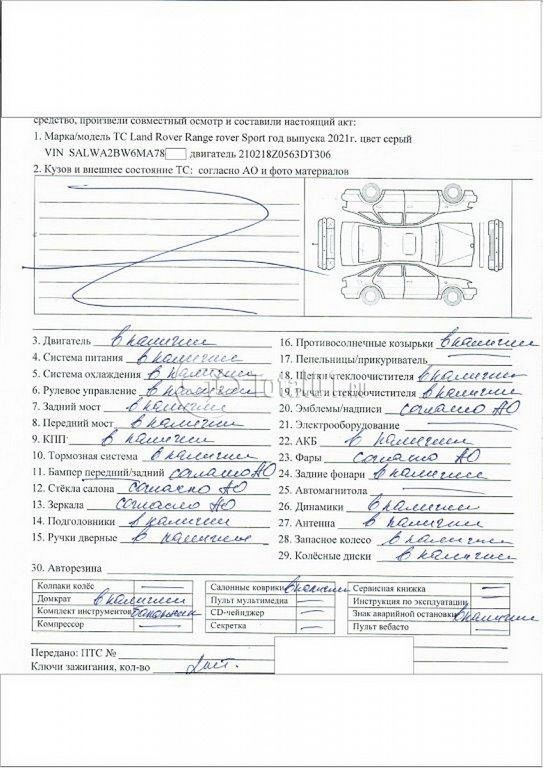 средство, произвели совместный осмотр и составили настоящий акт:
1. Марка/модель ТС Land Rover Range rover Sport год выпуска 2021г. цвет серый
VIN SALWA2BW6MA78 двигатель 210218Z0563DT306
2. Кузов и внешнее состояние ТС: согласно АО и фото материалов
3. Двигатель в наличии
4. Система питания в наличии
5. Система охлаждения в наличии
6. Рулевое управление в наличии
7. Задний мост в наличии
8. Передний мост в наличии
9. КПП в наличии
10. Тормозная система в наличии
11. Бампер передний/задний согласно АО
12. Стёкла салона согласно АО
13. Зеркала согласно АО
14. Подголовники в наличии
15. Ручки дверные в наличии
16. Противосолнечные козырьки в наличии
17. Пепельницы/прикуриватель
18. Щетки стеклоочистителя в наличии
19. Рычаги стеклоочистителя в наличии
20. Эмблемы/надписи согласно АО
21. Электрооборудование
22. АКБ в наличии
23. Фары согласно АО
24. Задние фонари в наличии
25. Автомагнитола
26. Динамики в наличии
27. Антенна в наличии
28. Запасное колесо в наличии
29. Колёсные диски в наличии
30. Авторезина
Колпаки колёс
Домкрат в наличии
Комплект инструментов
Компрессор
Салонные коврики в наличии
Пульт мультимедиа
CD-чейнджер
Секретка
Сервисная книжка
Инструкция по эксплуатации
Знак аварийной остановки в наличии
Пульт вебасто
Передано: ПТС №
Ключи зажигания, кол-во